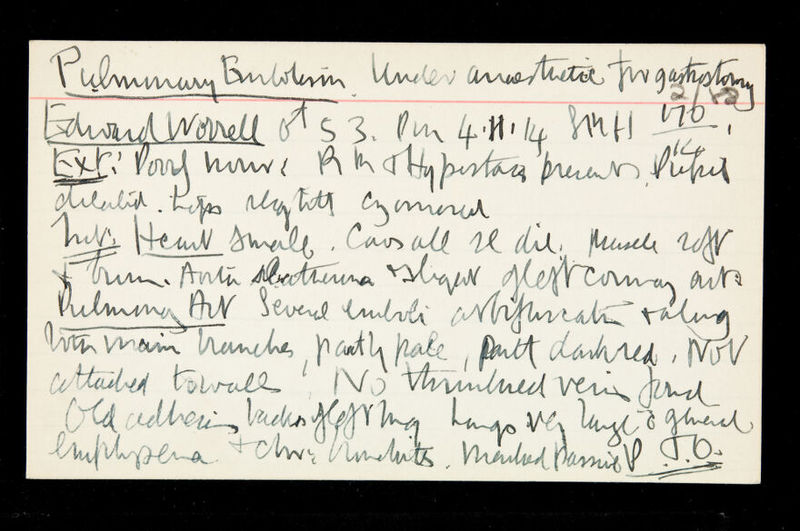 Pulmonary Embolism. Under anaesthetic for gastrostomy
2/12
Edward Worrell 53. Pm 4.11.14 170
Ext: Poorly nour: R M & Hypostasis present. Pupils
dilated. Lips slightly cyanosed
Int: Heart small. Cavs all dil. Muscle soft
& brown. Aorta atheroma & slight of left coronary art:
Pulmonary Art Several emboli at bifurcation & along
both main branches, partly pale, part dark red. Not
attached to walls. No thrombosed veins found
Old adhesions back of left lung Lungs very large c general
emphysema & chr: bronchitis. Marked passive